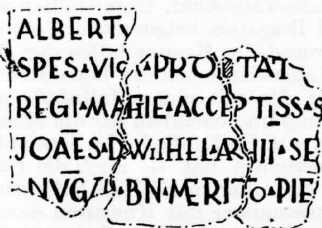 ALBERTV
SPES▴VIC▴PRO TAT
REGI▴MAHIE▴ACCEPTISS▴S
JOAES▴D▴WILHEL▴AR III▴SE
NVG BN▴MERITO▴PIE